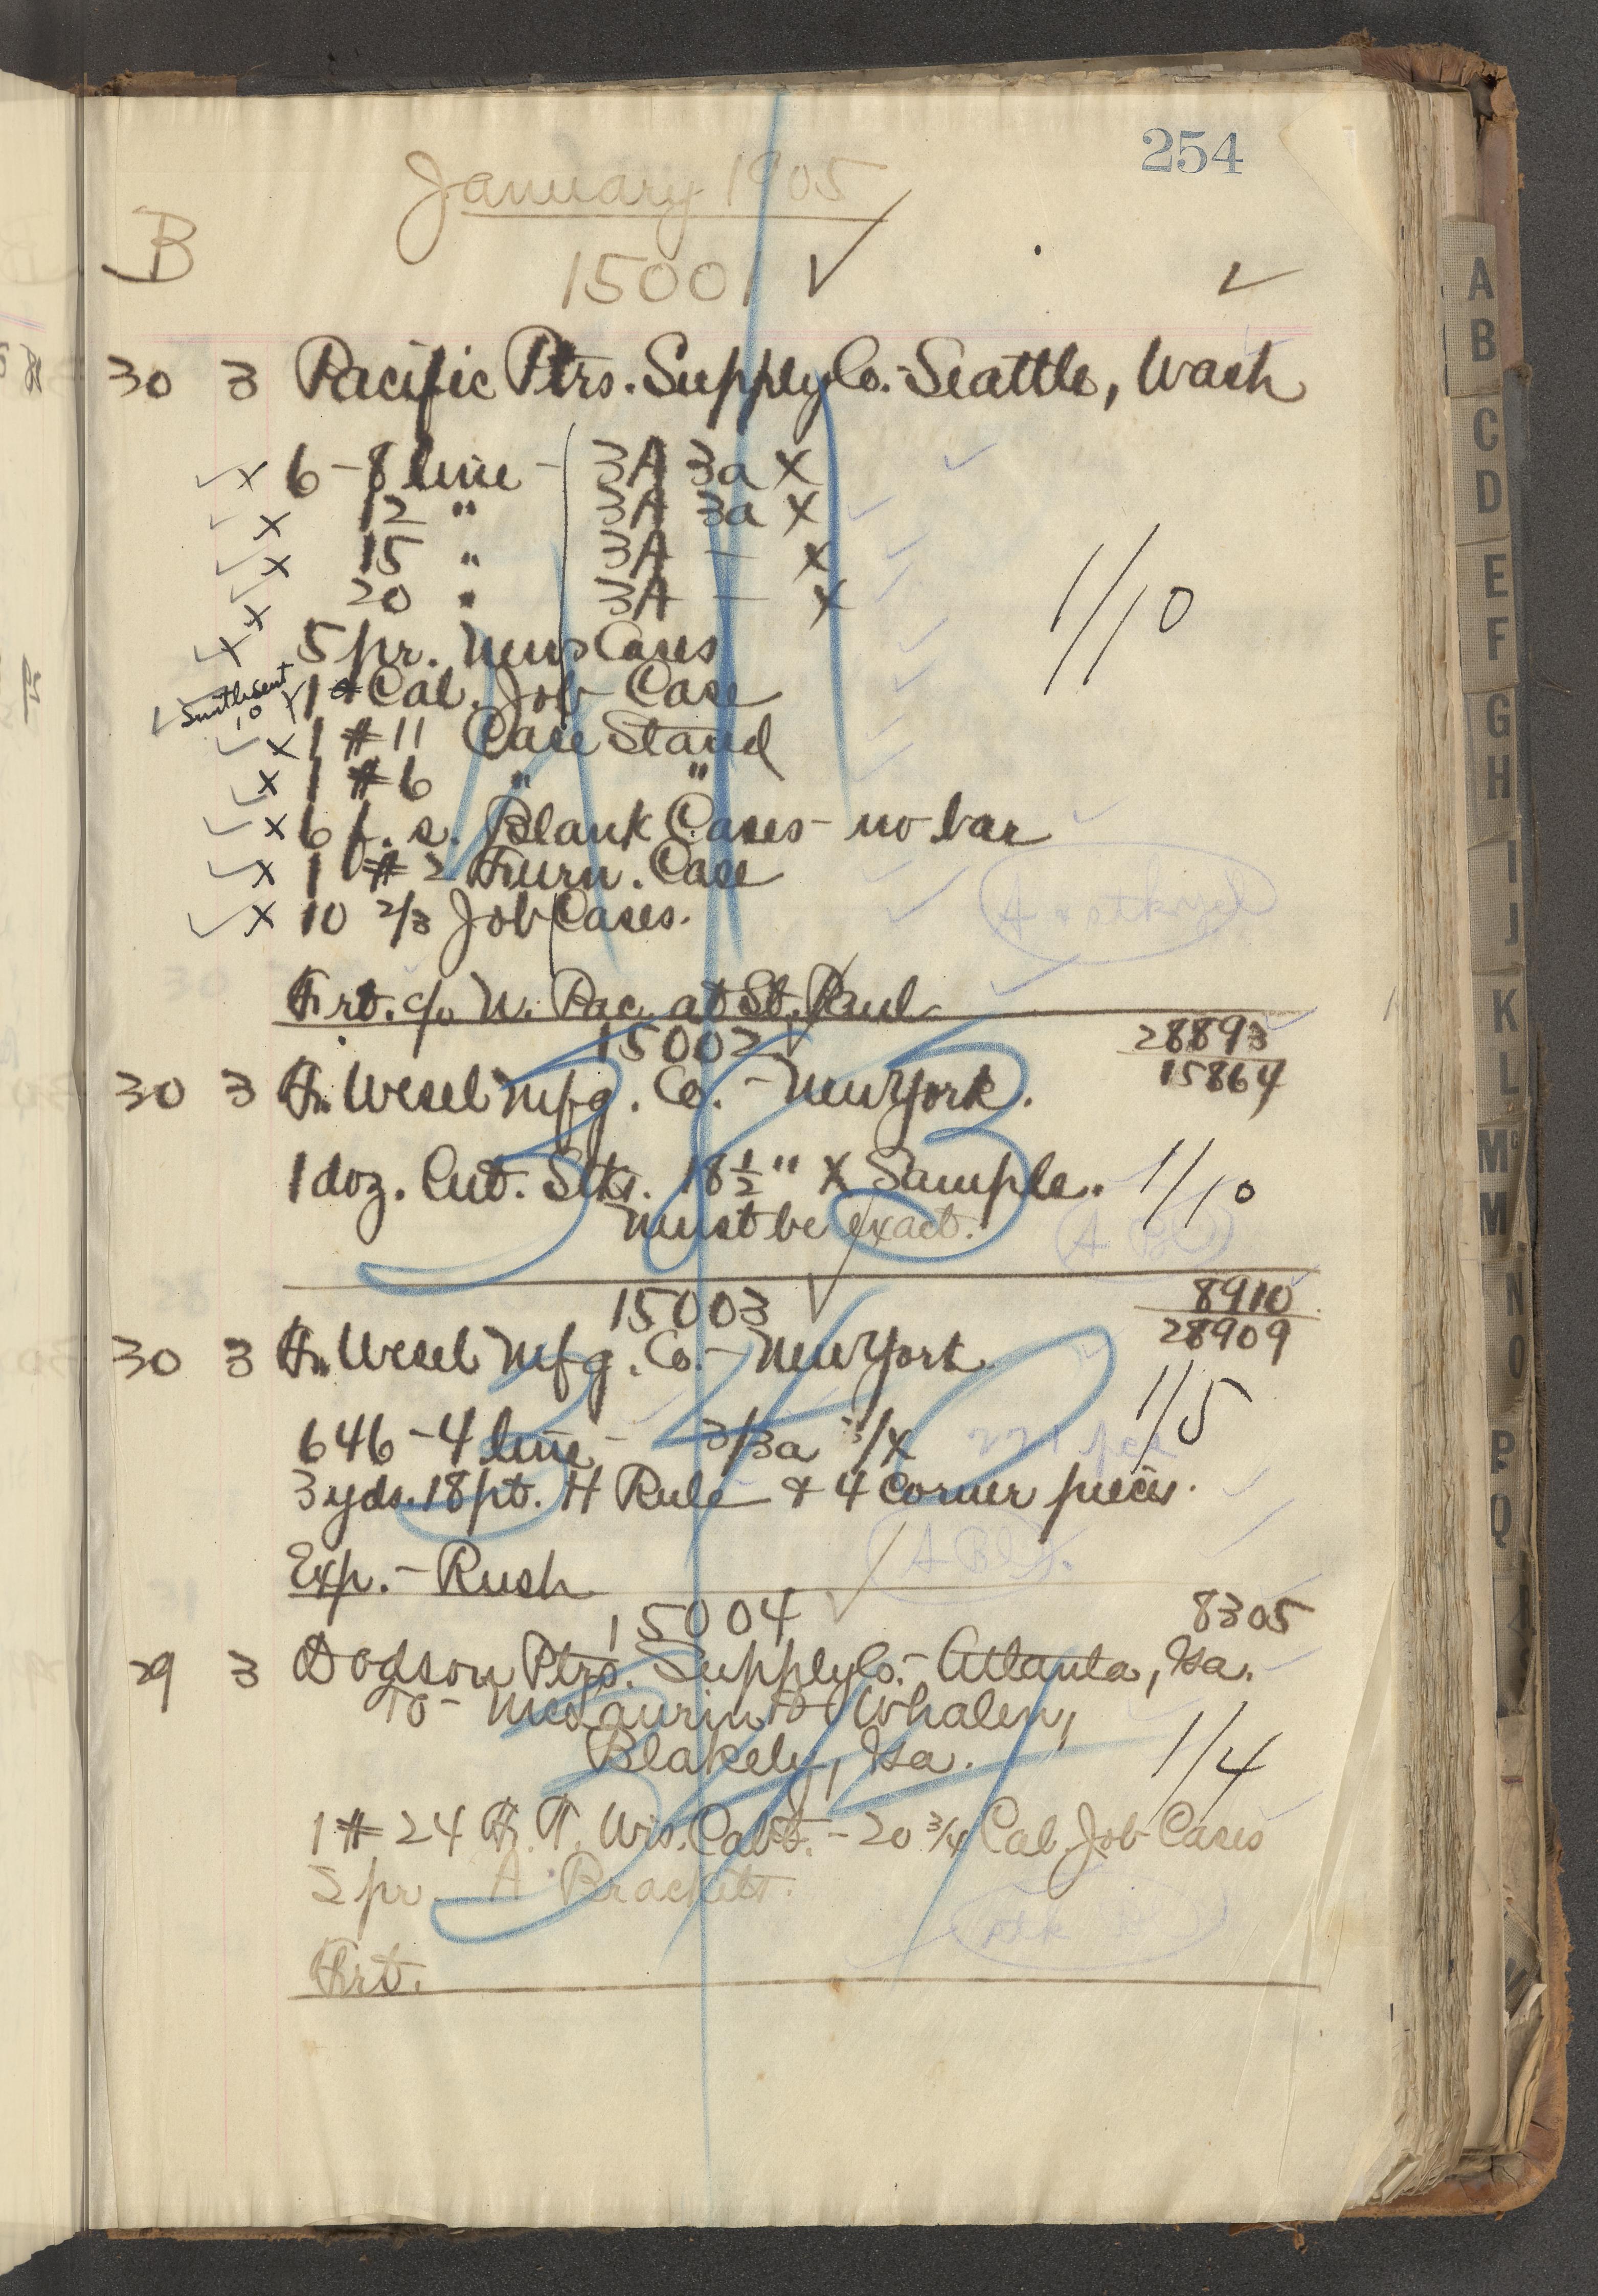 254
January 1905
B
15001 ✓ ✓
30 3 Pacific Ptrs. Supply Co. - Seattle, Wash
✓ x 6 - 8 line - 3A 3a x ✓
✓ x 12 " 3A 3a x ✓
✓ x 15 " 3A — x ✓
✓ x 20 " 3A — x ✓
1/10
✓ x 5 pr. News Cases ✓
1 Cal. Job Case ✓
✓ x 1 #11 Case Stand ✓
✓ x 1 #6 " " ✓
✓ x 6 f. s. Blank Cases - no bar ✓
✓ x 1 #2 Furn. Case ✓
✓ x 10 2/3 Job Cases. ✓
Frt. c/o N. Pac. at St. Paul ✓
15002 ✓
28893
15864
30 3 F. Wesel Mfg. Co. - New York.
1 doz. Cut. Stks. 18 1/2" X Sample. 1/10
Must be exact.
15003 ✓
8910
28909
30 3 F. Wesel Mfg. Co. - New York
1/5
646 - 4 line - 3/3a 3/X
3 yds. 18 pt. H Rule & 4 corner pieces.
Exp. - Rush
15004 ✓
8305
29 3 Dodson Ptrs. Supply Co. - Atlanta, Ga.
To - McLaurin & Whalen,
Blakely, Ga.
1/4
1 #24 H. T. Wis. Cabt. - 20 3/4 Cal. Job Cases
2 pr. A Brackets.
Frt.
A
B
C
D
E
F
G
H
I
J
K
L
Mc
M
N
O
P
Q